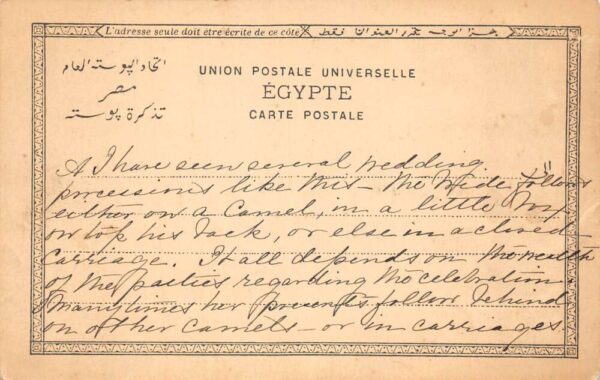 L'adresse seule doit être écrite de ce côté
اتحاد البوسته العام
مصر
تذكرة بوسته
UNION POSTALE UNIVERSELLE
ÉGYPTE
CARTE POSTALE
I have seen several wedding
processions like this - the bride follows
either on a Camel, in a little
on top his back, or else in a closed
carriage. It all depends on the wealth
of the parties regarding the celebration.
Many times her presents follow behind
on other camels - or in carriages